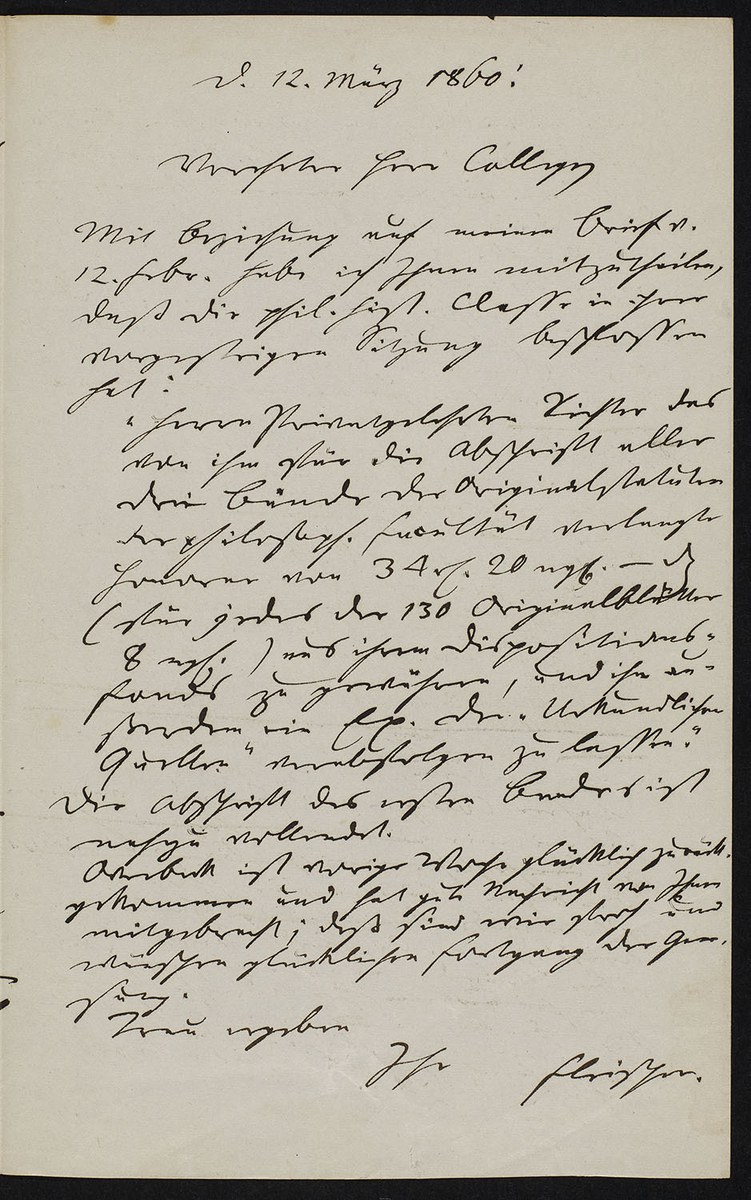 d. 12. März 1860.
Verehrter Herr College
Mit Beziehung auf meinen Brief v.
12. Febr. habe ich Ihnen mitzutheilen,
daß die phil. hist. Classe in ihrer
vorgestrigen Sitzung beschlossen
hat:
„Herrn Privatgelehrten Richter das
von ihm für die Abschrift aller
drei Bände der Originalstatuten
der philosoph. Facultät verlangte
Honorar von 34 rℓ. 20 ngℓ. —
(für jedes der 130 Originalblätter
8 ngℓ.) aus ihrem Dispositions-
fonds zu gewähren, und ihm au-
ßerdem ein Ex. der „Urkundlichen
Quellen“ verabfolgen zu lassen.“
Die Abschrift des ersten Bandes ist
nahezu vollendet.
Overbeck ist vorige Woche glücklich zurück-
gekommen und hat gute Nachricht von Ihnen
mitgebracht; deß sind wir froh und
wünschen glücklichen Fortgang der Gene-
sung.
Treu ergeben
Ihr Fleischer.